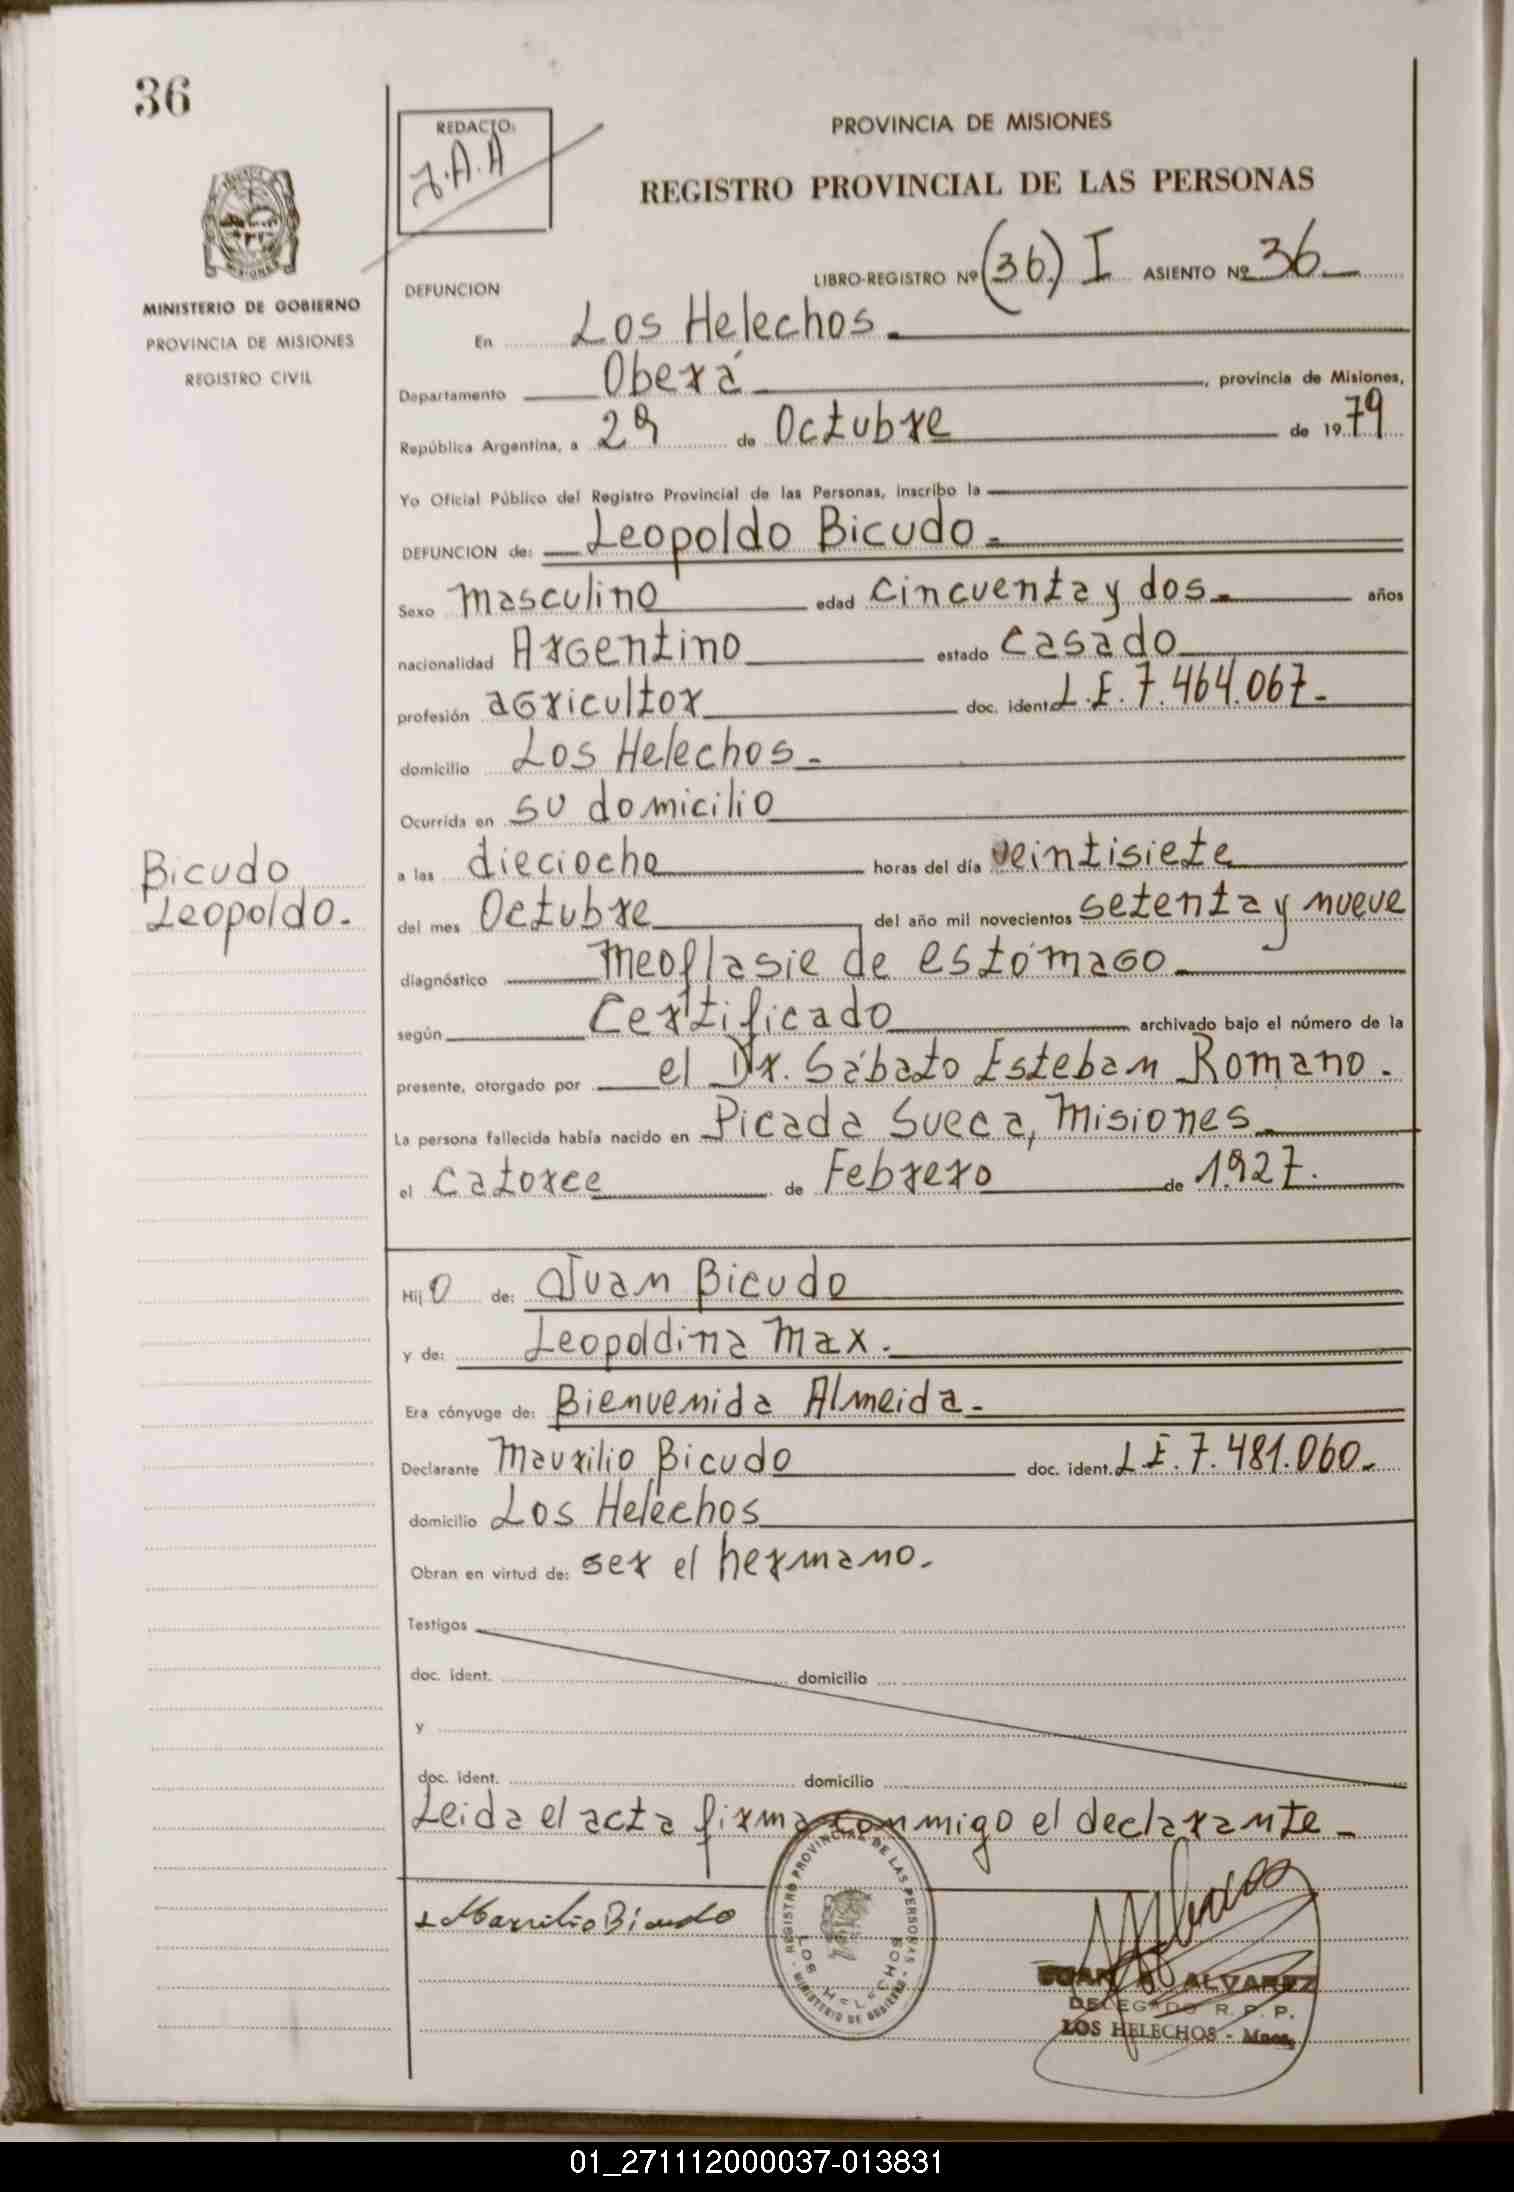 36
REDACTO:
J.A.A
PROVINCIA DE MISIONES
REGISTRO PROVINCIAL DE LAS PERSONAS
MISIONES
MINISTERIO DE GOBIERNO
PROVINCIA DE MISIONES
REGISTRO CIVIL
DEFUNCION LIBRO-REGISTRO Nº (36) I ASIENTO Nº 36
En Los Helechos.
Departamento Oberá, provincia de Misiones,
República Argentina, a 29 de Octubre de 1979
Yo Oficial Público del Registro Provincial de las Personas, inscribo la
DEFUNCION de: Leopoldo Bicudo.
Sexo masculino edad cincuenta y dos. años
nacionalidad Argentino estado casado
profesión agricultor doc. ident. L.E. 7.464.067.
domicilio Los Helechos.
Ocurrida en su domicilio
Bicudo
Leopoldo.
a las dieciocho horas del día veintisiete
del mes Octubre del año mil novecientos setenta y nueve
diagnóstico meoflasie de estómago
según Certificado archivado bajo el número de la
presente, otorgado por el Dr. Sábato Esteban Romano.
La persona fallecida había nacido en Picada Sueca, Misiones
el catorce de Febrero de 1.927.
Hijo de: Juan Bicudo
y de: Leopoldina Max.
Era cónyuge de: Bienvenida Almeida.
Declarante Maurilio Bicudo doc. ident. L.E. 7.481.060.
domicilio Los Helechos
Obran en virtud de: ser el hermano.
Testigos
doc. ident. domicilio
y
doc. ident. domicilio
Leida el acta firma conmigo el declarante
Maurilio Bicudo
REGISTRO PROVINCIAL DE LAS PERSONAS
MINISTERIO DE GOBIERNO
LOS HELECHOS
JUAN ALVAREZ
DELEGADO R. P. P.
LOS HELECHOS - Mnes.
01_271112000037-013831